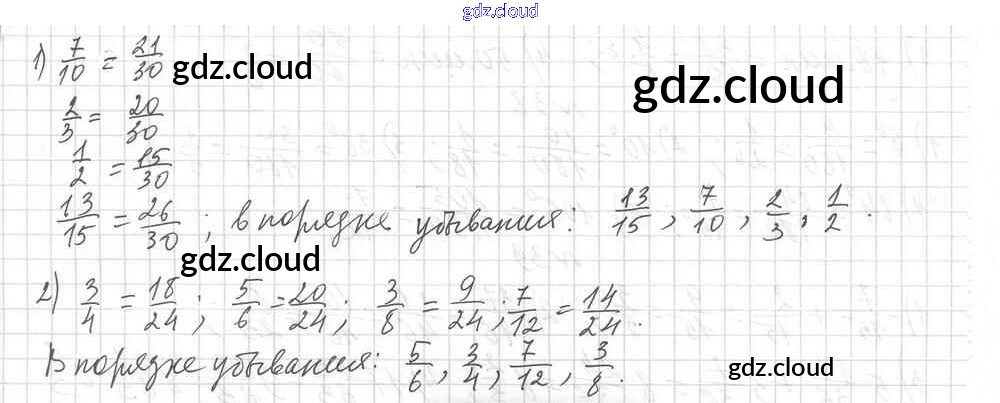 gdz.cloud
1) 7/10 = 21/30 gdz.cloud
gdz.cloud
2/3 = 20/30
1/2 = 15/30
13/15 = 26/30 ; в порядке убывания: 13/15, 7/10, 2/3, 1/2.
gdz.cloud
2) 3/4 = 18/24; 5/6 = 20/24; 3/8 = 9/24; 7/12 = 14/24.
В порядке убывания: 5/6, 3/4, 7/12, 3/8.
gdz.cloud